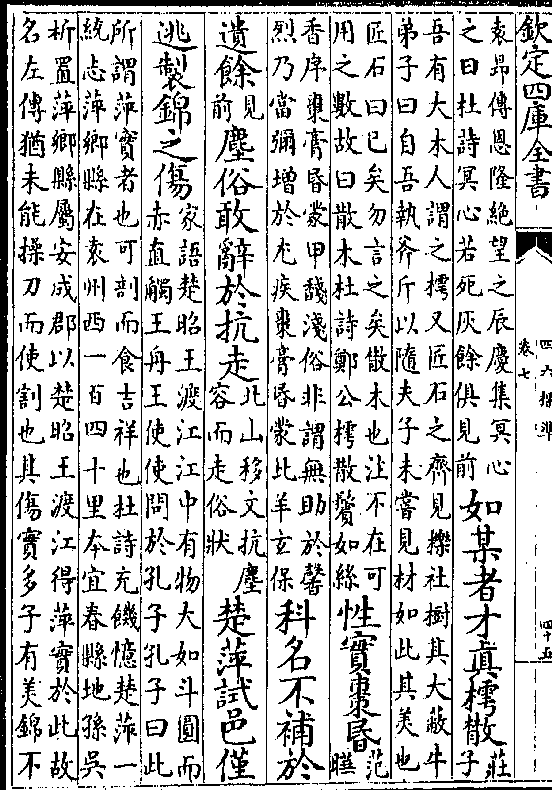 欽定四庫全書
四六標準
卷七
四十五
袁昂傳恩隆絶望之辰慶集冥心
之日杜詩冥心若死灰餘俱見前
如某者才真樗散
莊
子
吾有大木人謂之樗又匠石之齊見櫟社樹其大蔽牛
弟子曰自吾執斧斤以隨夫子未嘗見材如此其美也
匠石曰已矣勿言之矣散木也注不在可
用之數故曰散木杜詩鄭公樗散鬢如絲
性實棗昏
范
曄
香序棗膏昏蒙甲馢淺俗非謂無助於馨
烈乃當彌增於尤疾棗膏昏蒙比羊玄保
科名不補於
遺餘
見
前
塵俗敢辭於抗走
北山移文抗塵
容而走俗狀
楚萍試邑僅
逃製錦之傷
家語楚昭王渡江江中有物大如斗圓而
赤直觸王舟王使使問於孔子孔子曰此
所謂萍實者也可剖而食吉祥也杜詩充饑憶楚萍一
統志萍鄉縣在袁州西一百四十里本宜春縣地孫吳
析置萍鄉縣屬安成郡以楚昭王渡江得萍實於此故
名左傳猶未能操刀而使割也其傷實多子有美錦不